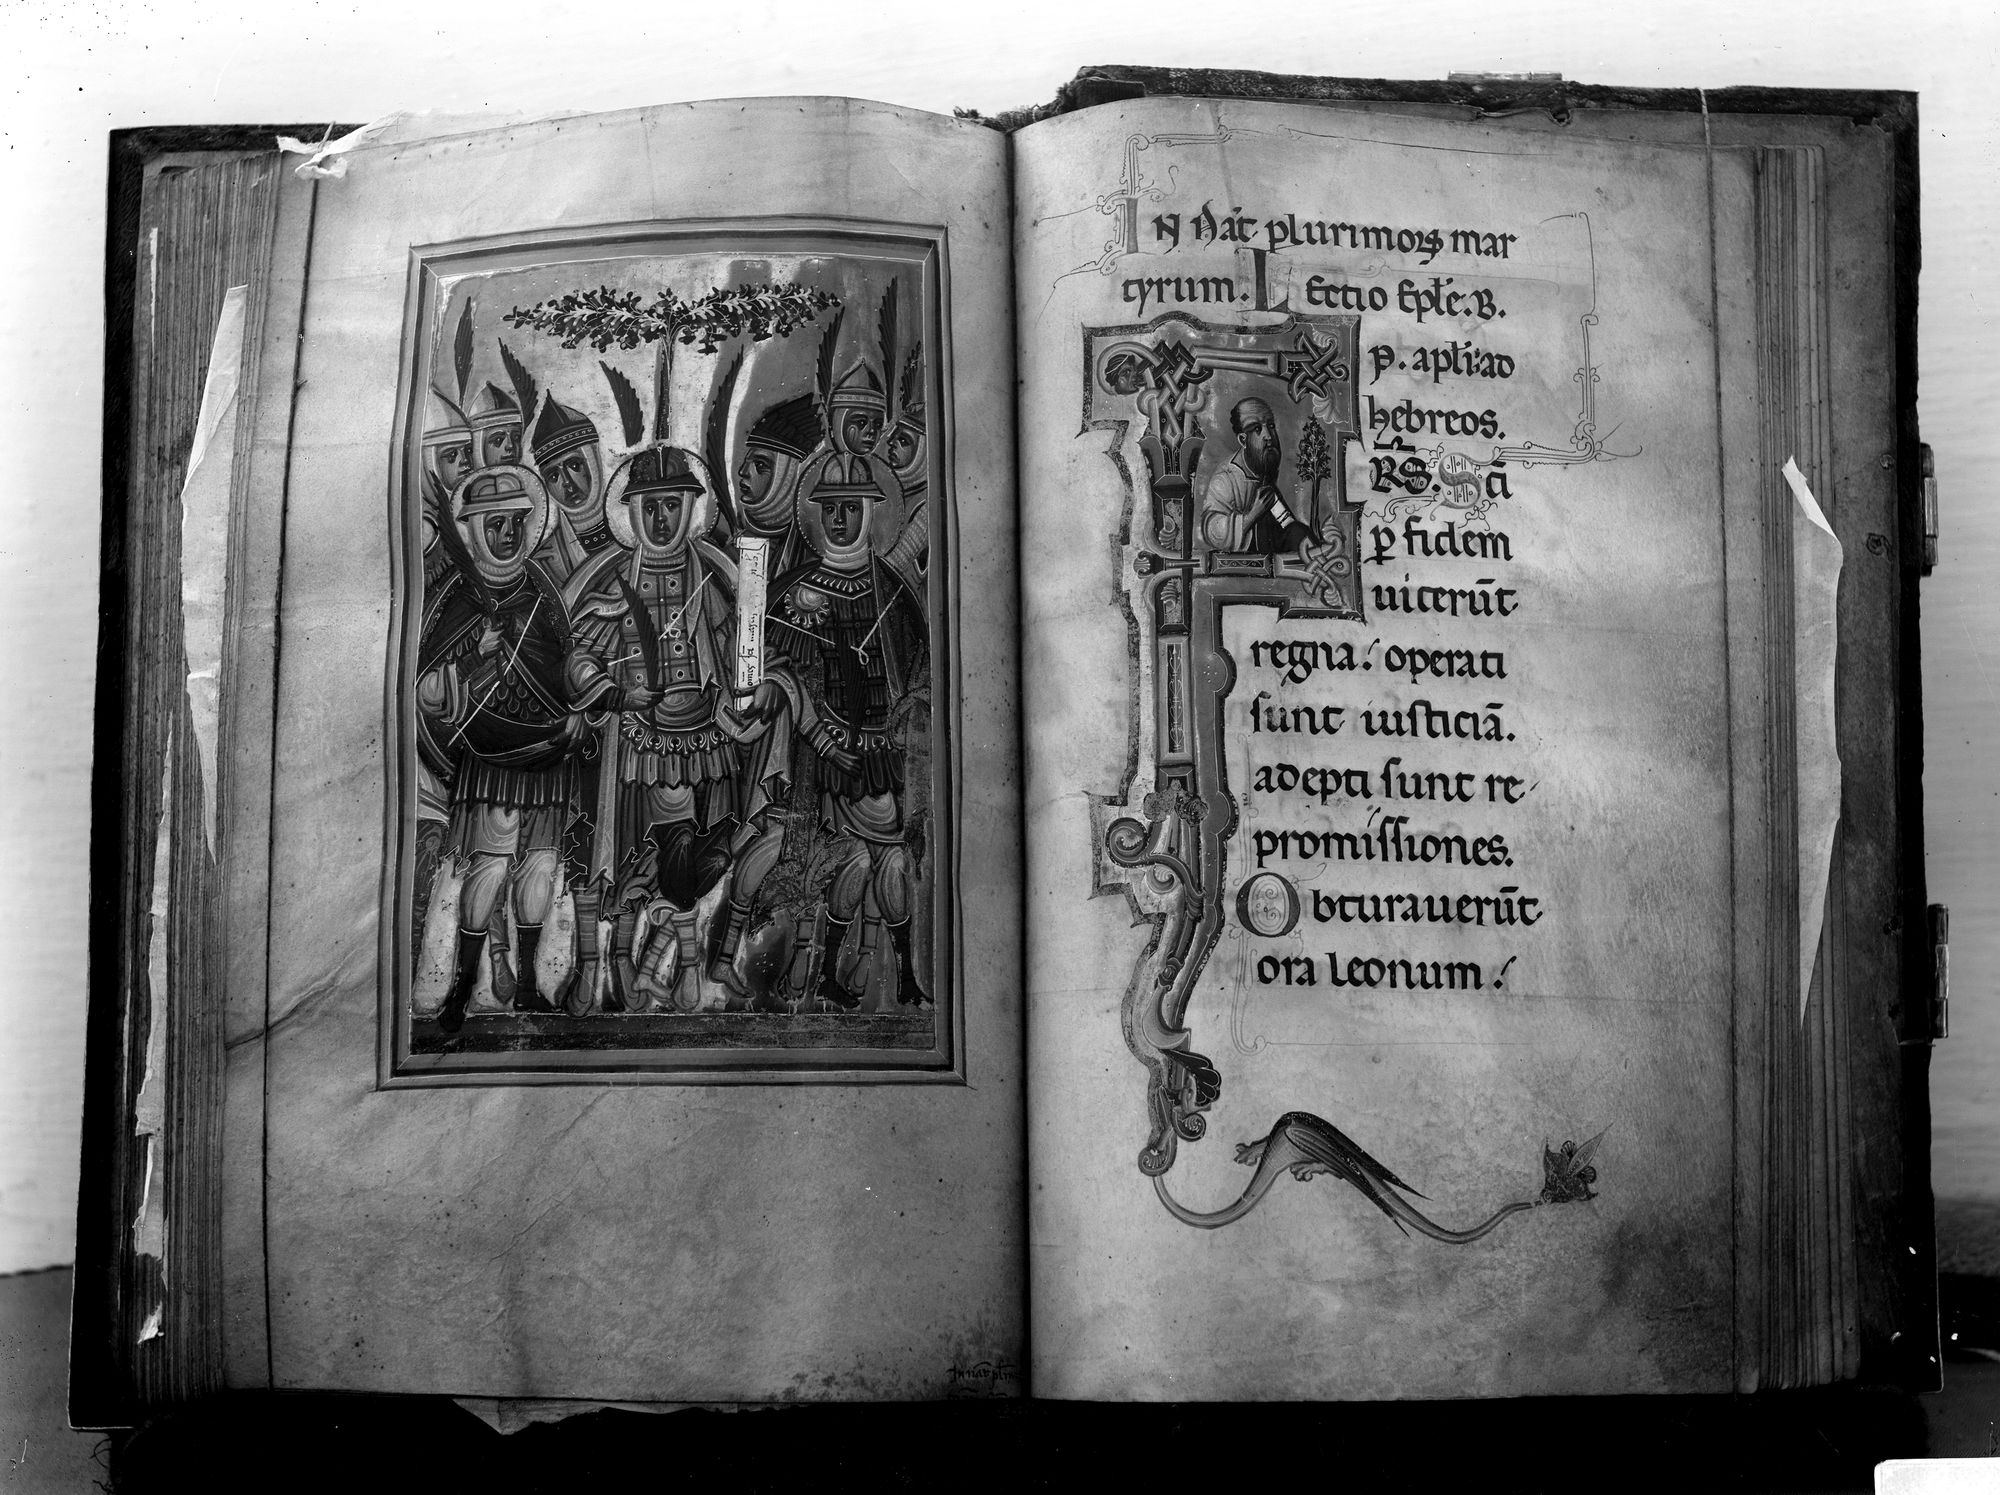 omnes sci martires
In nat pl
IN Nat plurimoꝝ mar
tyrum. Lectio Eple. B.
P. apli: ad
hebreos.
FRS. Sci
p fidem
uicerūt
regna: operati
sunt iusticiā.
adepti sunt re
promissiones.
Obturauerūt
ora leonum: